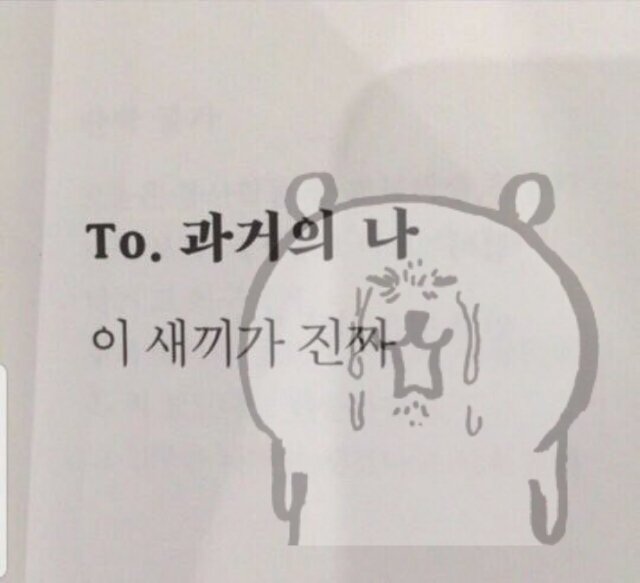 To. 과거의 나
이 새끼가 진짜